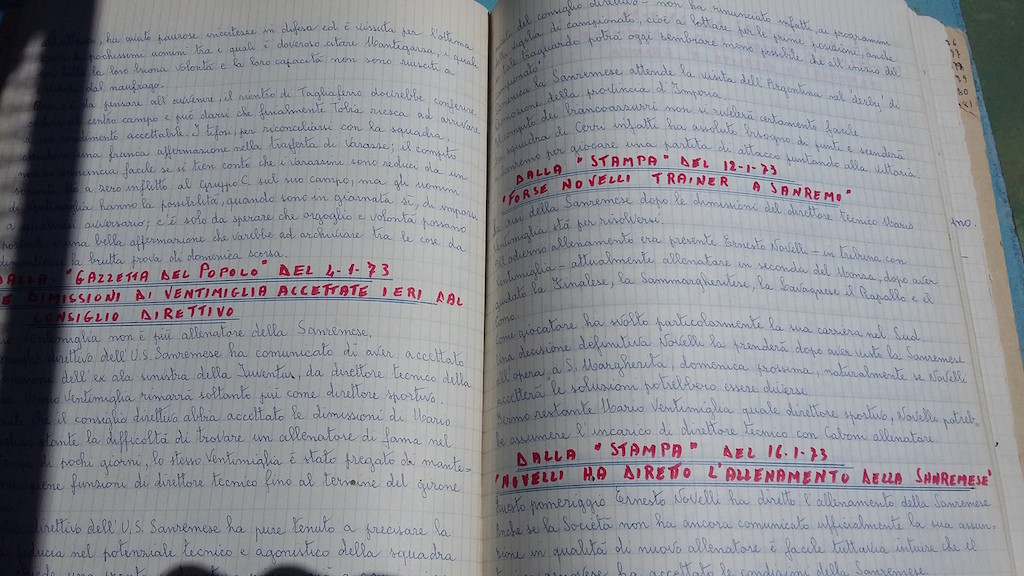 ha avuto paurose incertezze in difesa ed è vissuta per l'ottima
pochissimi uomini tra i quali è doveroso citare Mantegazza, i quale
la loro buona volontà e la loro capacità non sono riusciti a
dal naufragio.
da pensare all'avvenire, il rientro di Tagliaferro dovrebbe conferire
centro campo e può darsi che finalmente Tobia riesca ad arrivare
accettabile. I tifosi, per riconciliarsi con la squadra,
una franca affermazione nella trasferta di Varazze; il compito
facile se si tien conto che i varazzini sono reduci da un
a zero inflitto al gruppo C sul suo campo, ma gli uomini
hanno la possibilità, quando sono in giornata sì, di imporsi
avversario; c'è solo da sperare che orgoglio e volontà possano
una bella affermazione che varrebbe ad archiviare tra le cose da
la brutta prova di domenica scorsa.
DALLA "GAZZETTA DEL POPOLO" DEL 4-1-73
DIMISSIONI DI VENTIMIGLIA ACCETTATE IERI DAL
CONSIGLIO DIRETTIVO
Ventimiglia non è più allenatore della Sanremese.
direttivo dell'U.S. Sanremese ha comunicato di aver accettato
dell'ex ala sinistra della Juventus, da direttore tecnico della
Mario Ventimiglia rimarrà soltanto più come direttore sportivo.
il consiglio direttivo abbia accettato le dimissioni di Mario
stante la difficoltà di trovare un allenatore di fama nel
di pochi giorni, lo stesso Ventimiglia è stato pregato di mante-
funzioni di direttore tecnico fino al termine del girone
direttivo dell'U.S. Sanremese ha pure tenuto a precisare la
fiducia nel potenziale tecnico e agonistico della squadra
del consiglio direttivo - non ha rinunciato infatti, ai programmi
vigilia di campionato, cioè a lottare per le prime posizioni, anche
tale traguardo potrà oggi sembrare meno possibile che all'inizio del
la Sanremese attende la visita dell'Argentina nel "derby" di
della provincia d'Imperia.
compito dei biancoazzurri non si rivelerà certamente facile
squadra di Cerri infatti ha assoluto bisogno di punti e scenderà
per giocare una partita di attacco puntando alla vittoria.
DALLA "STAMPA" DEL 12-1-73
"FORSE NOVELLI TRAINER A SANREMO"
La crisi della Sanremese dopo le dimissioni del direttore tecnico Mario
Ventimiglia sta per risolversi.
All'odierno allenamento era presente Ernesto Novelli - in tribuna con
Ventimiglia - attualmente allenatore in seconda del Monza, dopo aver
guidato la Finalese, la Sammargheritese, la Lavagnese il Rapallo e il
Como.
Come giocatore ha svolto particolarmente la sua carriera nel Sud
Una decisione definitiva Novelli la prenderà dopo aver visto la Sanremese
all'opera a S. Margherita, domenica prossima, naturalmente se Novelli
accetterà le soluzioni potrebbero essere diverse.
Fermo restante Mario Ventimiglia quale direttore sportivo, Novelli potreb-
be assumere l'incarico di direttore tecnico con Caboni allenatore
DALLA "STAMPA" DEL 16-1-73
"NOVELLI HA DIRETTO L'ALLENAMENTO DELLA SANREMESE"
Questo pomeriggio Ernesto Novelli ha diretto l'allenamento della Sanremese
Anche se la Società non ha ancora comunicato ufficialmente la sua assun-
zione in qualità di nuovo allenatore è facile tuttavia intuire che il
ha accettato le condizioni della Sanremese